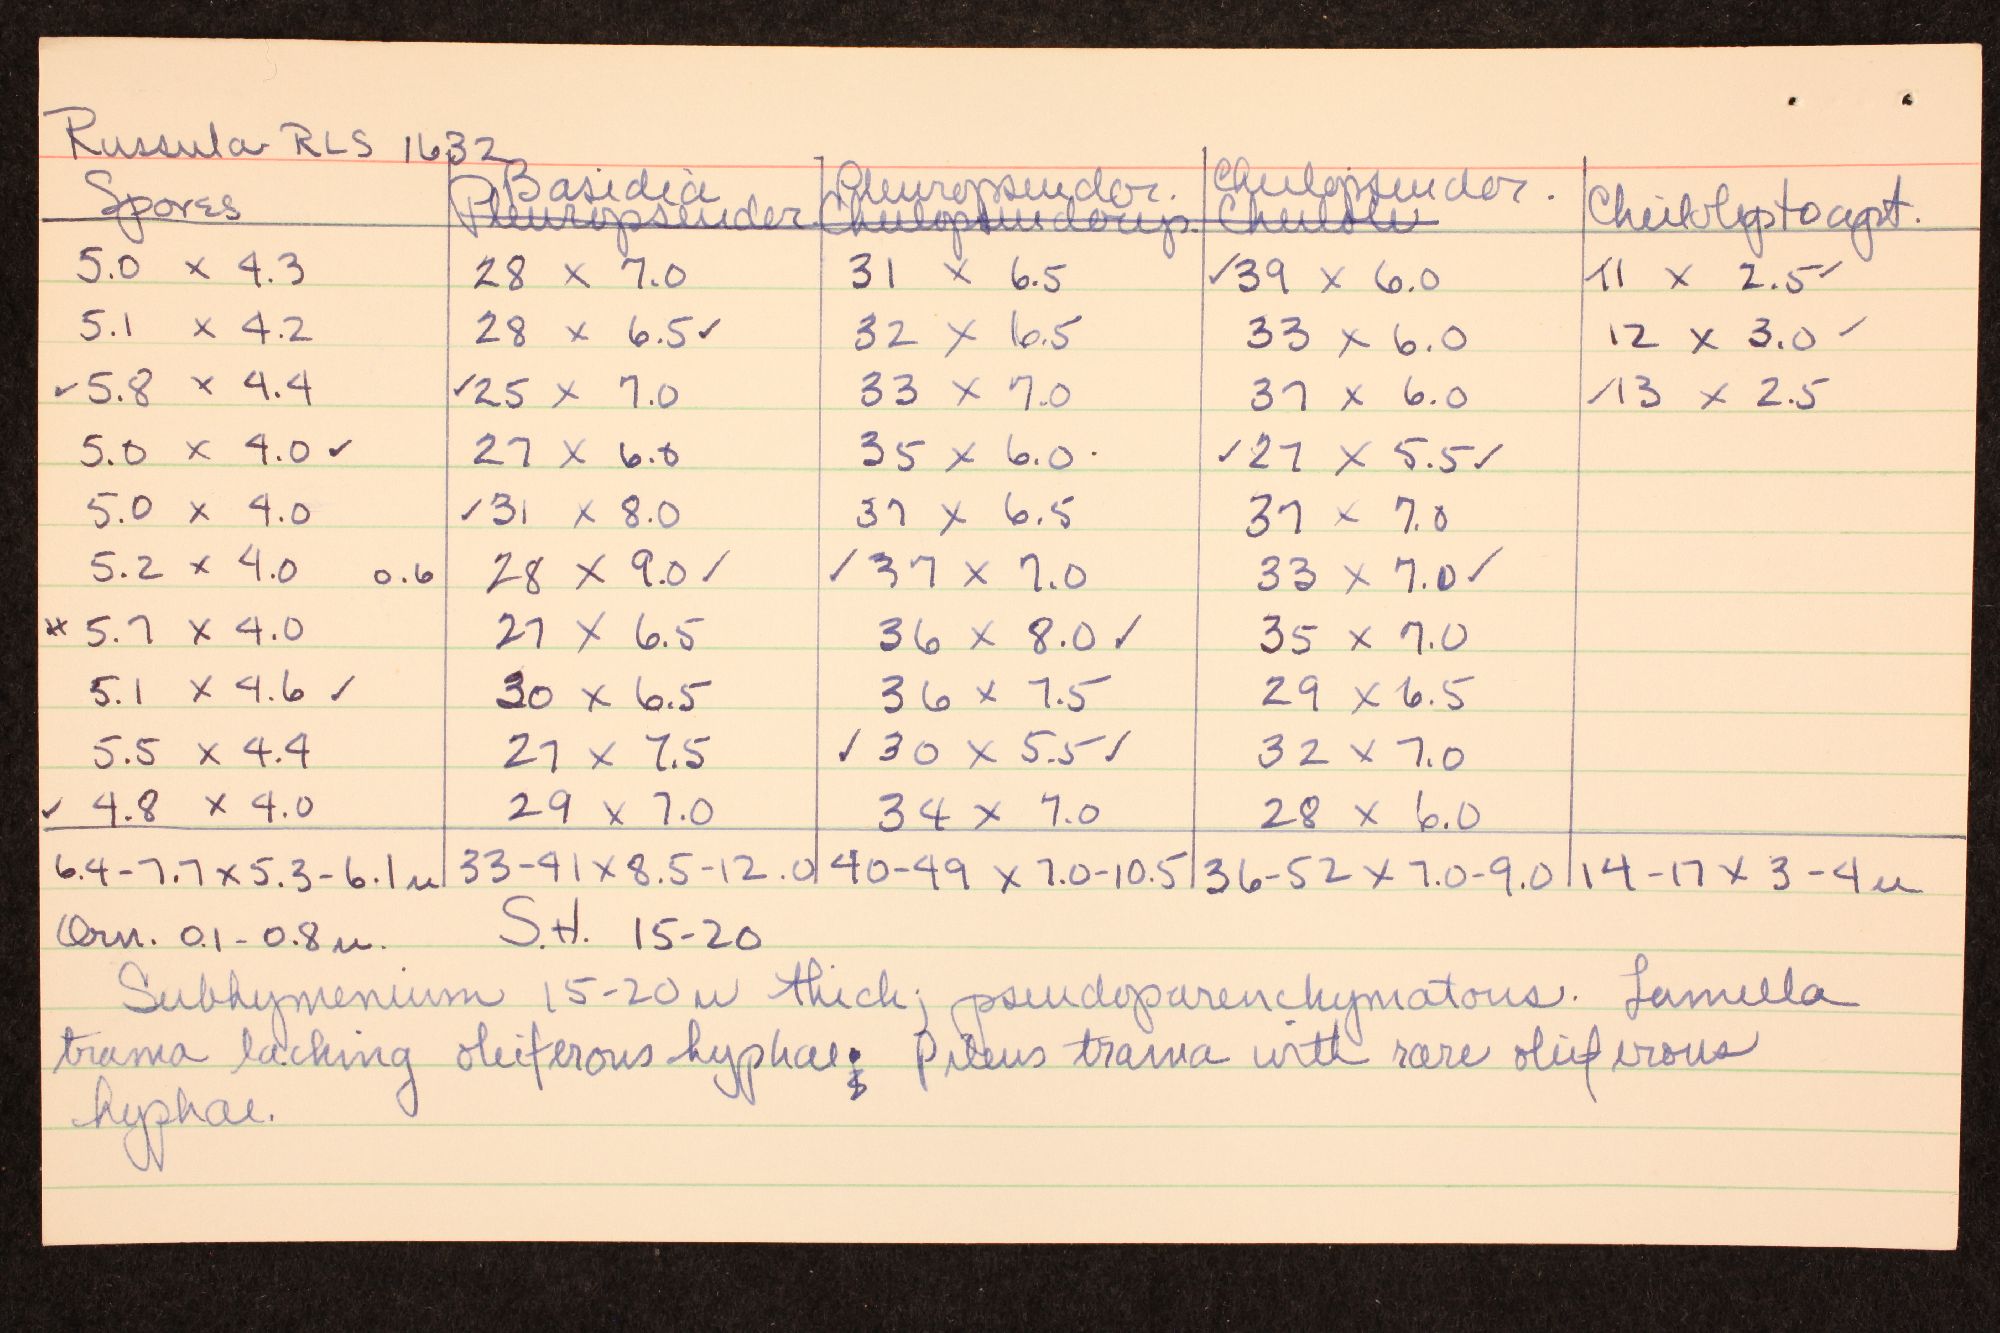 Russula RLS 1632
Spores Basidia Pleuropseudor. Cheilopseudor. Cheiloleptocyst.
Pleuropseudor Cheilopseudocys.
5.0 x 4.3 28 x 7.0 31 x 6.5 ✓39 x 6.0 11 x 2.5✓
5.1 x 4.2 28 x 6.5✓ 32 x 6.5 33 x 6.0 12 x 3.0✓
✓5.8 x 4.4 ✓25 x 7.0 33 x 7.0 37 x 6.0 ✓13 x 2.5
5.0 x 4.0✓ 27 x 6.0 35 x 6.0 ✓27 x 5.5✓
5.0 x 4.0 ✓31 x 8.0 37 x 6.5 37 x 7.0
5.2 x 4.0 0.6 28 x 9.0✓ ✓37 x 7.0 33 x 7.0✓
* 5.7 x 4.0 27 x 6.5 36 x 8.0✓ 35 x 7.0
5.1 x 4.6✓ 30 x 6.5 36 x 7.5 29 x 6.5
5.5 x 4.4 27 x 7.5 ✓30 x 5.5✓ 32 x 7.0
✓4.8 x 4.0 29 x 7.0 34 x 7.0 28 x 6.0
6.4-7.7 x 5.3-6.1u 33-41 x 8.5-12.0 40-49 x 7.0-10.5 36-52 x 7.0-9.0 14-17 x 3-4u
Orn. 0.1-0.8u. S.H. 15-20
Subhymenium 15-20u thick; pseudoparenchymatous. Lamella
trama lacking oleiferous hyphae; Pileus trama with rare oleiferous
hyphae.